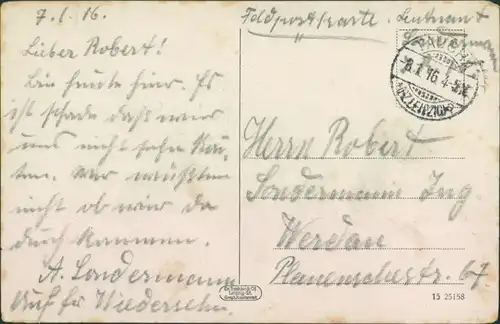 7.1.16.
Lieber Robert!
Bin heute hier. Es
ist schade daß wir
uns nicht sehen kön-
nten. Wir wußten
nicht ob wir da
durch kommen.
A. Sondermann
Auf fr Wiedersehn.
Feldpostkarte. Leutnant
Sondermann
8.1.16. 4-5
(BZ. LEIPZIG)
Herrn Robert
Sondermann Ing.
Werdau
Plauenschestr. 67
15 25158